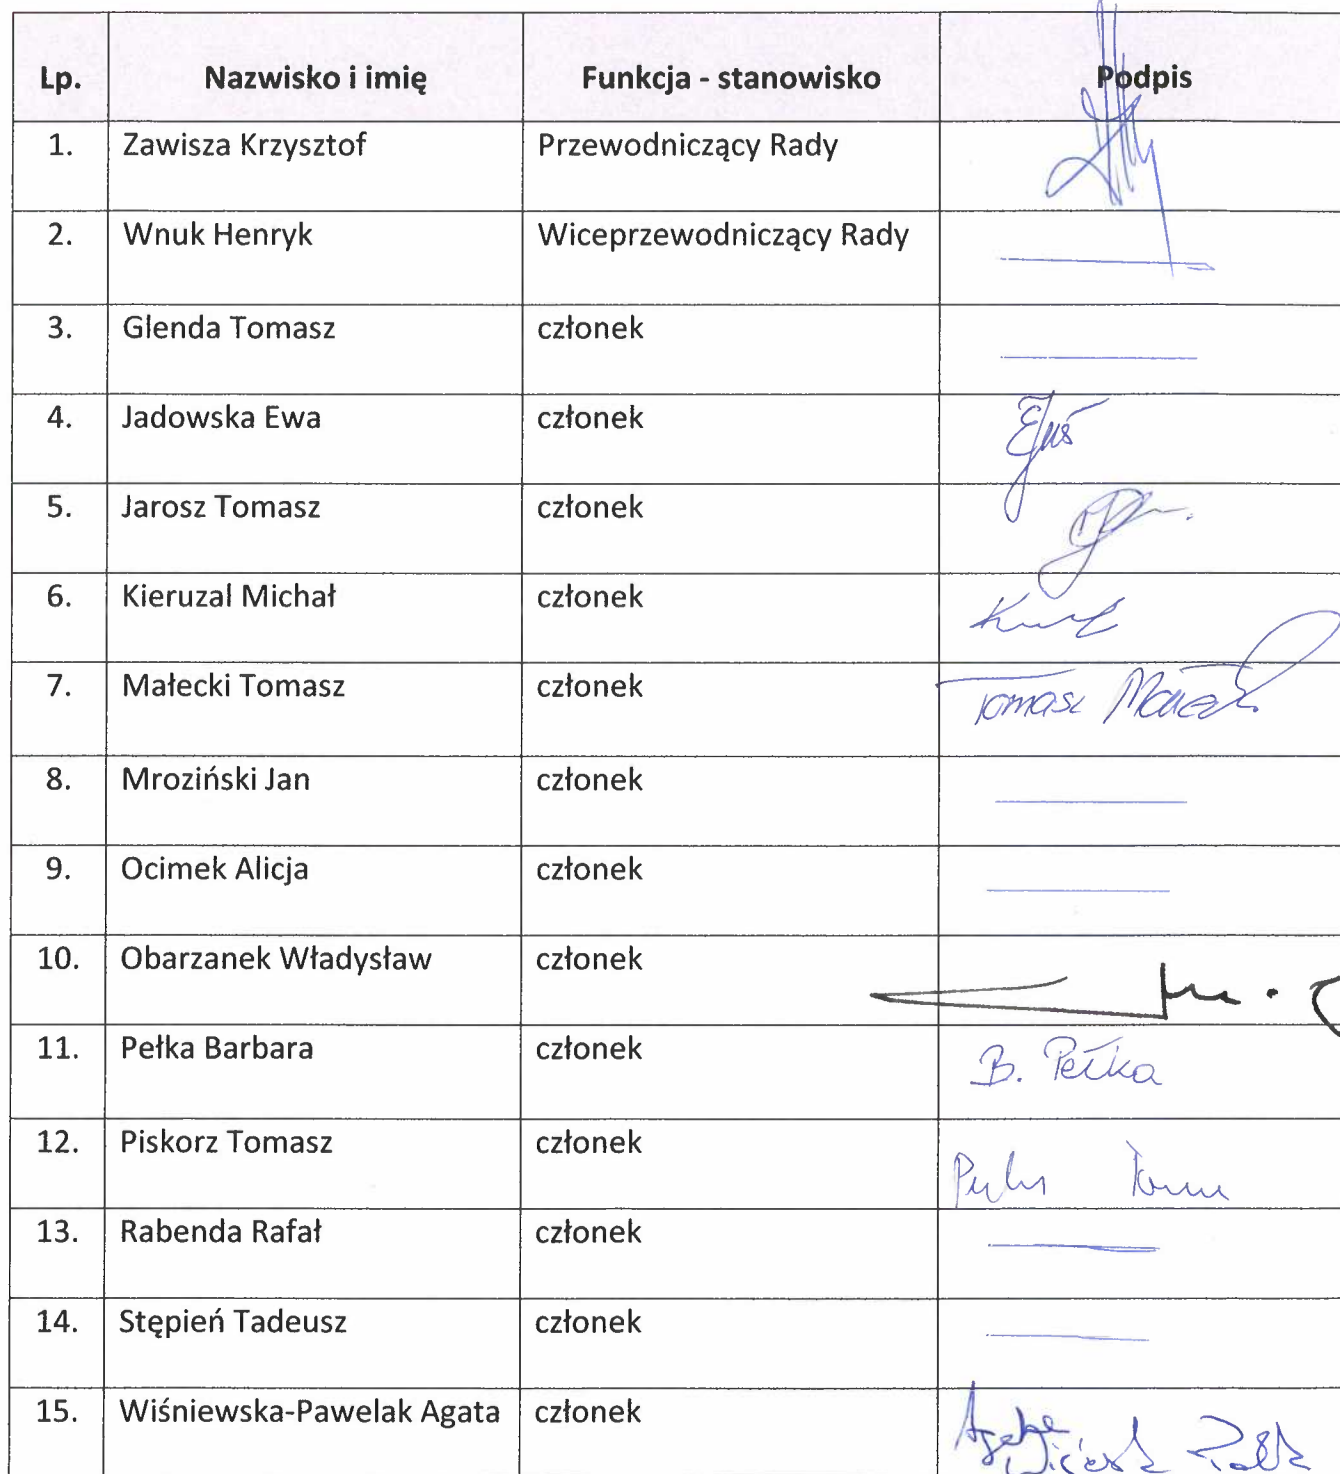 Lp. Nazwisko i imię Funkcja - stanowisko Podpis
1. Zawisza Krzysztof Przewodniczący Rady
2. Wnuk Henryk Wiceprzewodniczący Rady
3. Glenda Tomasz członek
4. Jadowska Ewa członek
5. Jarosz Tomasz członek
6. Kieruzal Michał członek
7. Małecki Tomasz członek Tomasz
8. Mroziński Jan członek
9. Ocimek Alicja członek
10. Obarzanek Władysław członek
11. Pełka Barbara członek B. Pełka
12. Piskorz Tomasz członek
13. Rabenda Rafał członek
14. Stępień Tadeusz członek
15. Wiśniewska-Pawelak Agata członek Agata